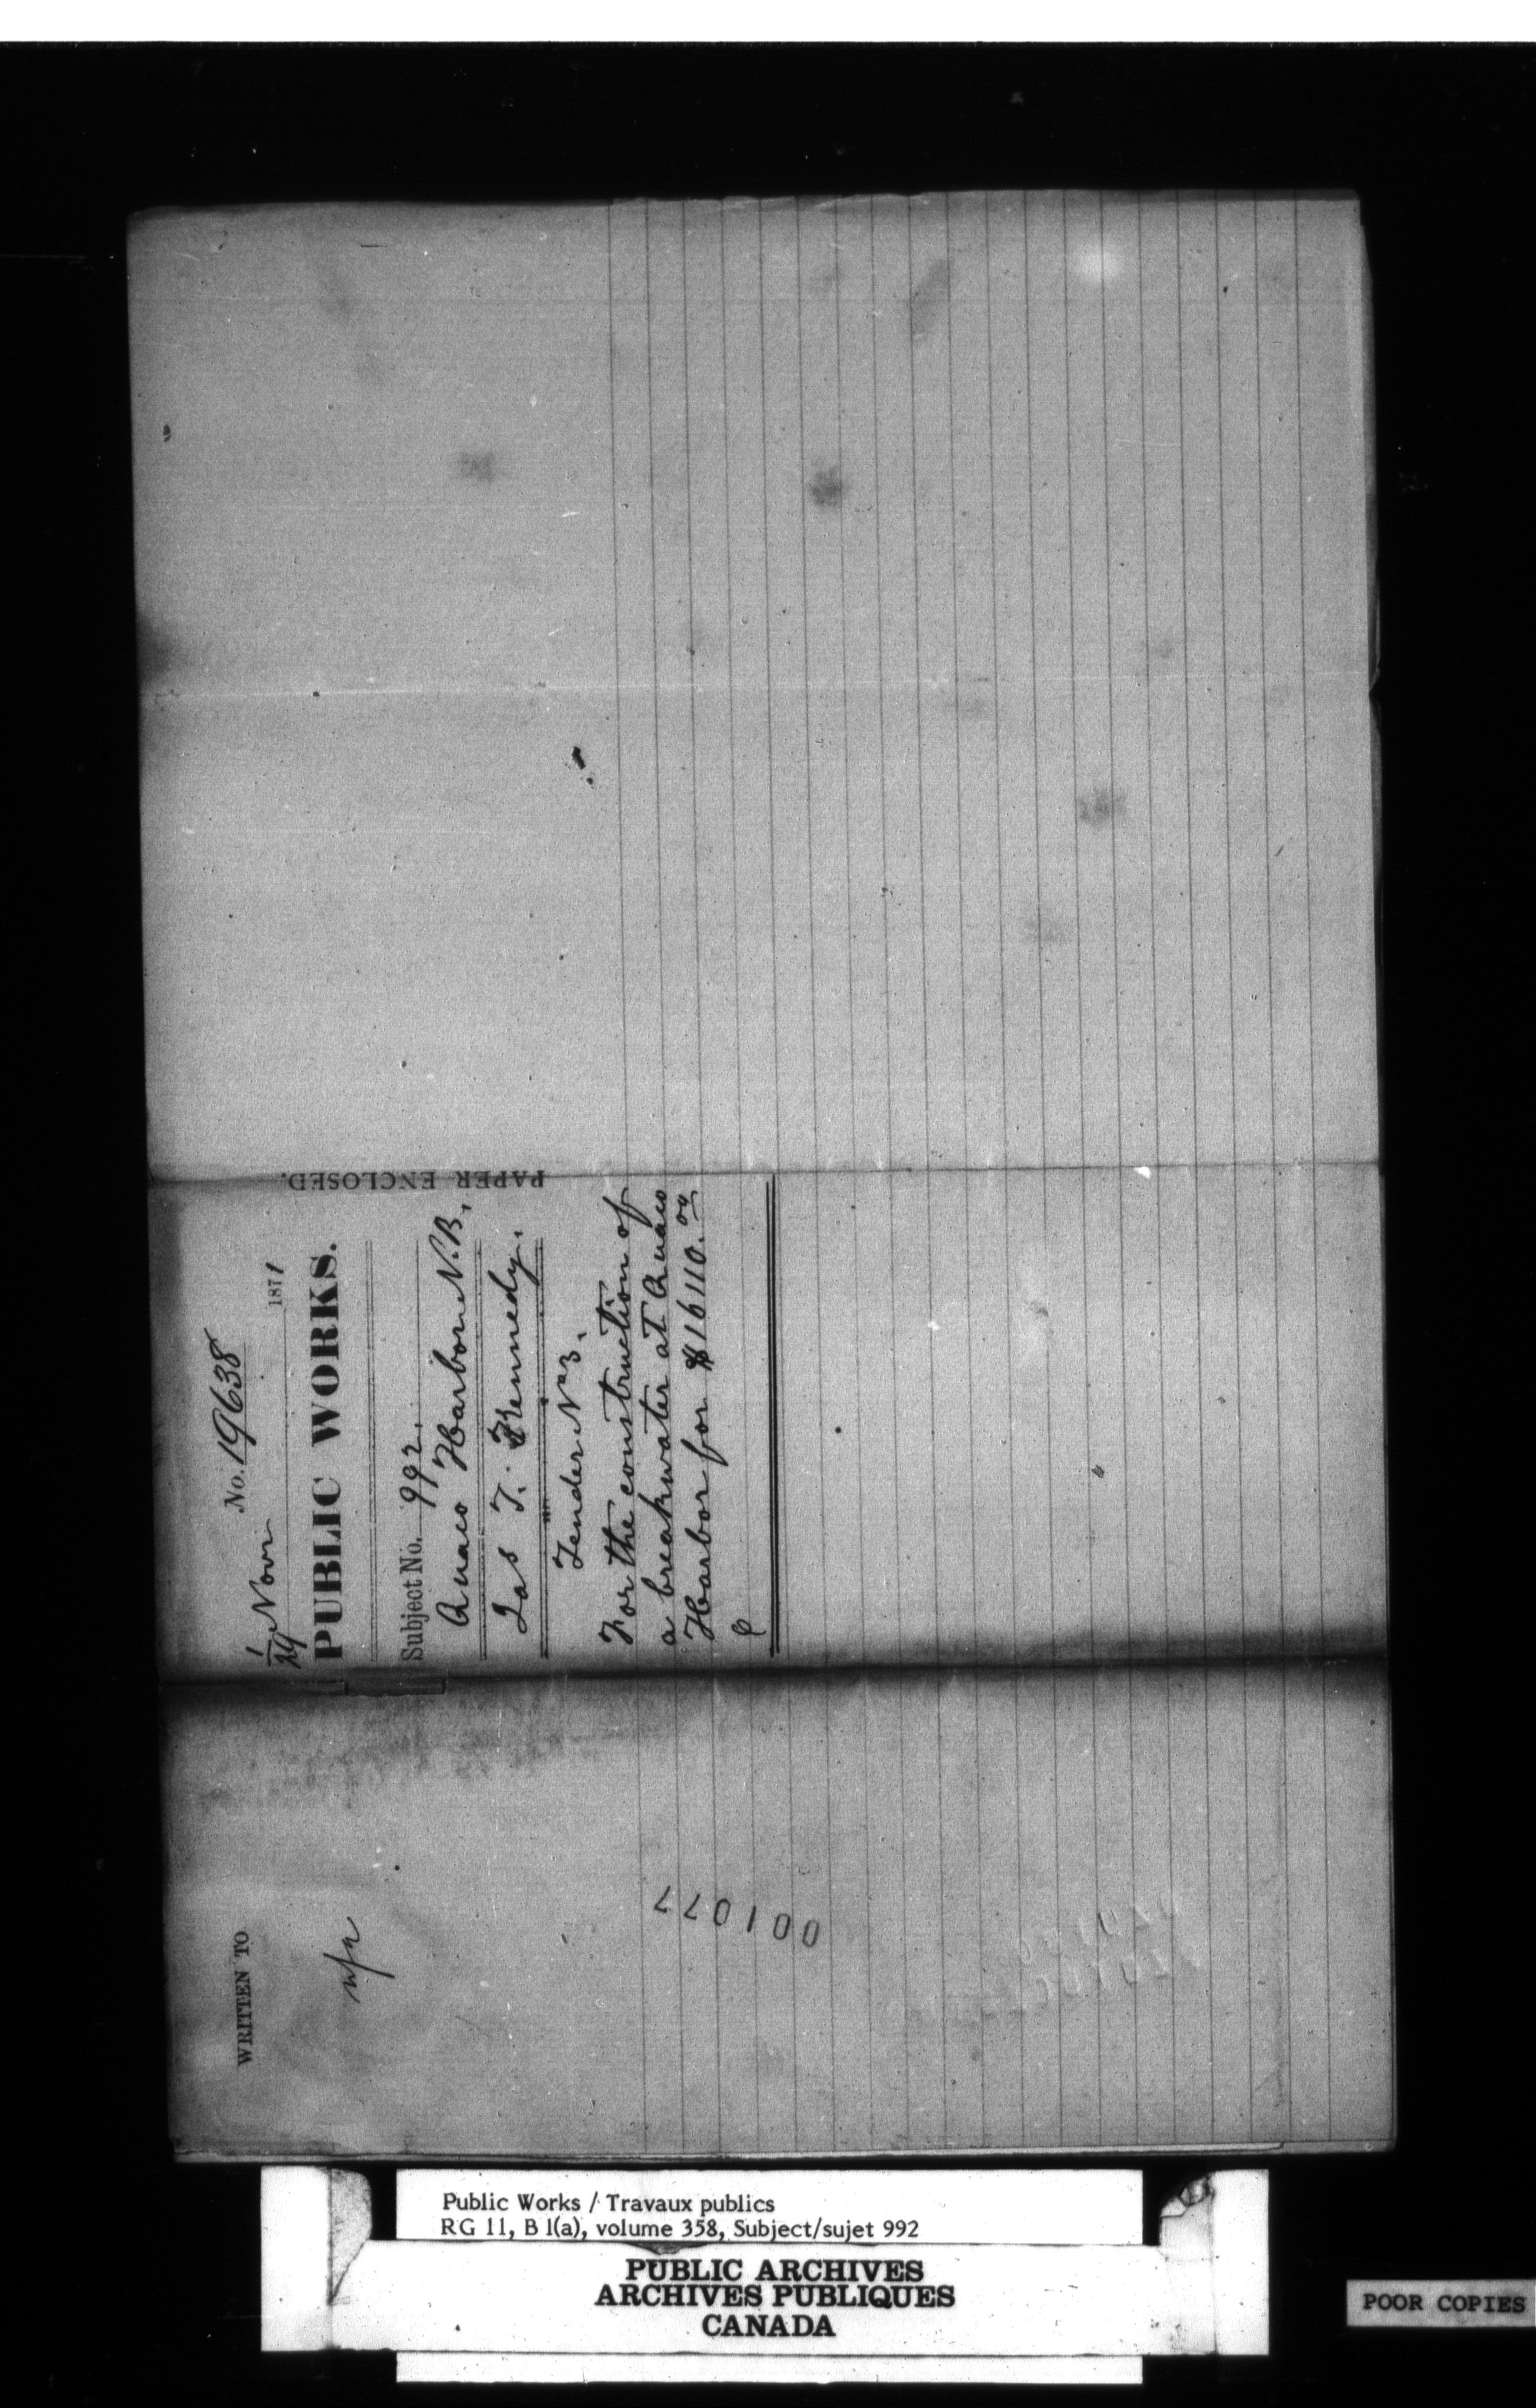 No. 19638
1/29 Novr 1871
PUBLIC WORKS.
Subject No. 992.
Quaco Harbor N.B.
Jas T. Kennedy.
Tender No 3.
For the construction of
a breakwater at Quaco
Harbor for $16110.00
PAPER ENCLOSED.
WRITTEN TO
001077
Public Works / Travaux publics
RG 11, B 1(a), volume 358, Subject/sujet 992
PUBLIC ARCHIVES
ARCHIVES PUBLIQUES
CANADA
POOR COPIES